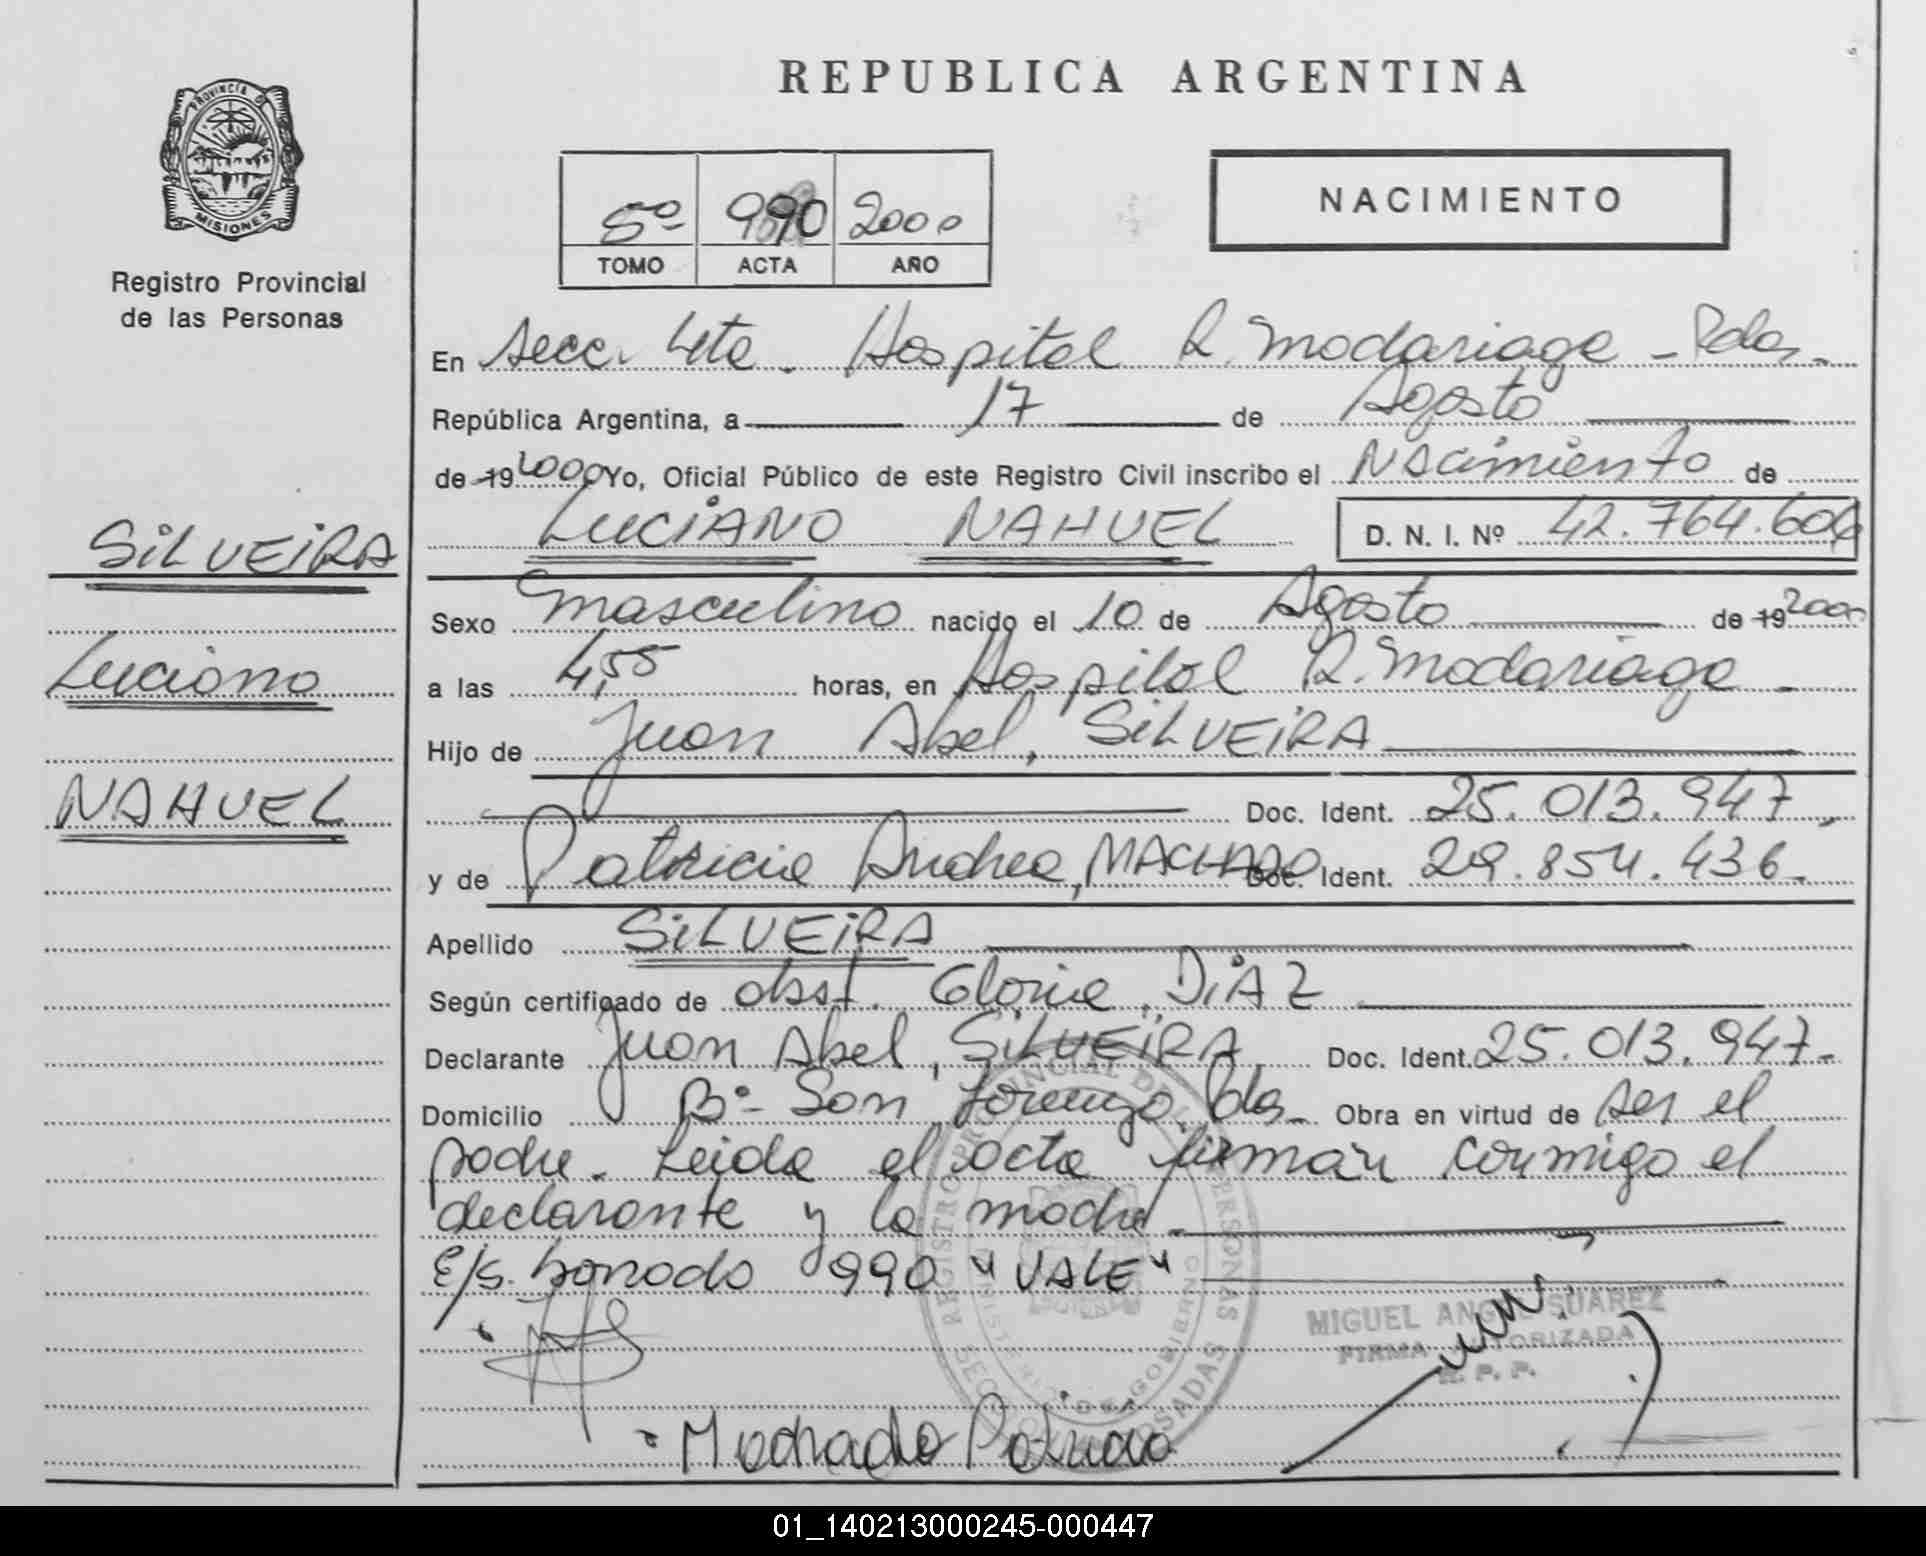 REPUBLICA ARGENTINA
PROVINCIA D
MISIONES
Registro Provincial
de las Personas
5º 990 2000
TOMO ACTA AÑO
NACIMIENTO
En Secc. 4ta. Hospital R. Madariaga - Pdas.
República Argentina, a 17 de Agosto
de 19 2000 Yo, Oficial Público de este Registro Civil inscribo el Nacimiento de
LUCIANO NAHUEL D. N. I. Nº 42.764.606
SILVEIRA
Luciano
NAHUEL
Sexo masculino nacido el 10 de Agosto de 19 2000
a las 4,55 horas, en Hospital R. Madariaga -
Hijo de Juan Abel, SILVEIRA
Doc. Ident. 25.013.947.
y de Patricia Andrea, MACHADO Doc. Ident. 29.854.436.
Apellido SILVEIRA
Según certificado de obst. Gloria, DIAZ
Declarante Juan Abel, SILVEIRA Doc. Ident. 25.013.947.
Domicilio Bº San Lorenzo Pdas. Obra en virtud de ser el
padre. Leída el acta firman conmigo el
declarante y la madre.
E/s. borrado 990 "VALE"
REGISTRO PROVINCIAL DE LAS PERSONAS
MINISTERIO DE GOBIERNO
POSADAS
MIGUEL ANGEL SUAREZ
FIRMA AUTORIZADA
R. P. P.
Machado Patricia
01_140213000245-000447